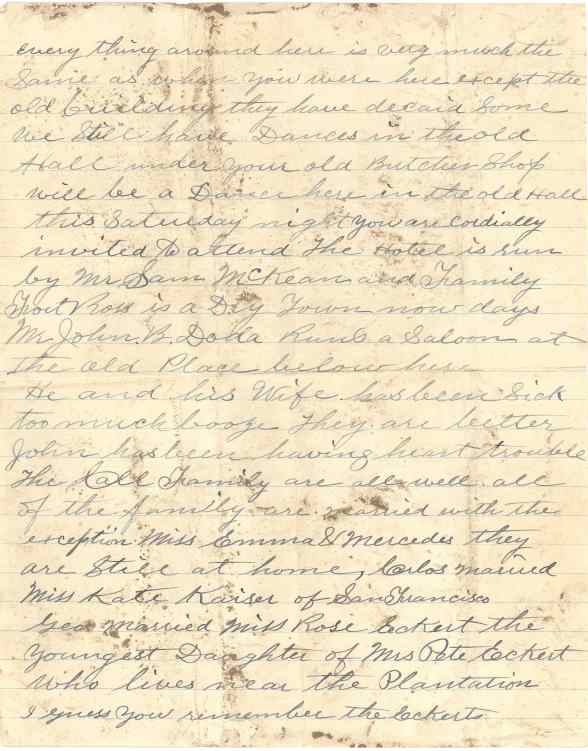 every thing around here is very much the
Same as when you were here except the
old building they have decaid Some
We Still have Dances in the old
Hall under your old Butcher Shop
will be a Dance here in the old Hall
this Saturday night you are Cordially
invited to attend The Hotel is run
by Mr Sam McKean and Family
Fort Ross is a Dry Town now days
Mr John. B. Doda Runs a Saloon at
the old Place below here
He and his Wife has been Sick
too much booze They are better
John has been having heart trouble
The Call Family are all well. all
of the family are married with the
exception Miss Emma & Mercedes they
are Still at home, Carlos married
Miss Kate Kaiser of San Francisco
Geo married Miss Rose Eckert the
Youngest Daughter of Mrs Pete Eckert
who lives near the Plantation
I guess You remember the Eckerts